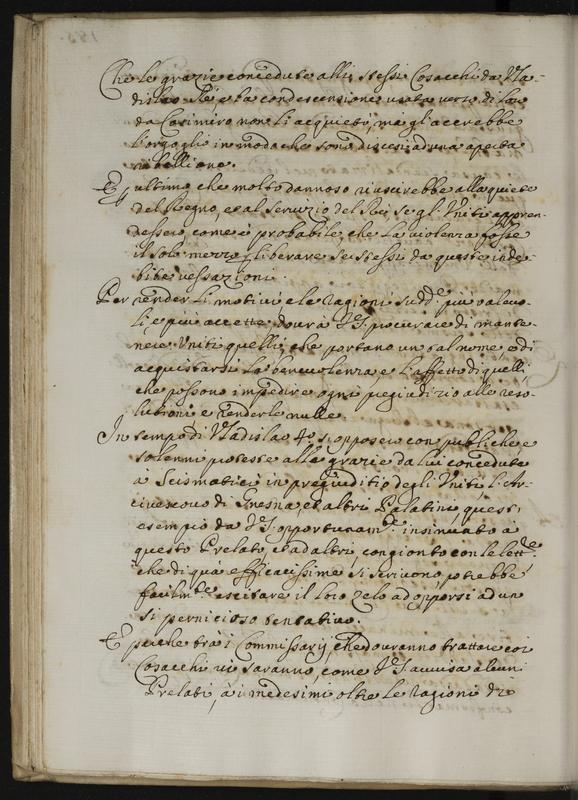 Che le grazie concedute alli stessi Cosacchi da Vla-
dislao Rè, e la condescensione usata verso di loro
da Casimiro non li acquietò, mà gl'accrebbe
l'orgoglio in modo che sono discesi ad una aperta
ribellione.
Et ultimo che molto dannoso riuscirebbe alla quiete
del Regno, et al servizio del Rè, se gl'Uniti appren-
dessero come è probabile, che la violenza fosse
il solo mezzo p liberare se stessi da queste inde-
bite vessazioni.
Per render li motivi, e le ragioni sudd.e più valevo-
li, e più accette dovrà V.S. procurare di mante-
nere Uniti quelli, che portano un tal nome, e di
acquistarsi la benevolenza, e l'affetto di quelli,
che possono impedire ogni pregiudizio alle reso-
lutioni e renderle nulle.
In tempo di Vladislao 4o si oppose con publiche, e
solenni proteste alle grazie da lui concedute
à Scismatici in pregiuditio degli Uniti l'Ar-
civescovo di Gnesna, et altri Palatini, quest'
esempio da V.S. opportunam.te insinuato à
questo Prelato, et ad altri, congionto con le lett.e
che di quà efficacissime si scrivono, potrebbe
facilm.te eccitare il loro zelo ad opporsi ad un
si pernicioso tentativo.
E perche trà i Commissarij, che dovranno trattare coi
Cosacchi vi saranno, come V.S. avvisa alcuni
Prelati, à i medesimi oltre le ragioni di